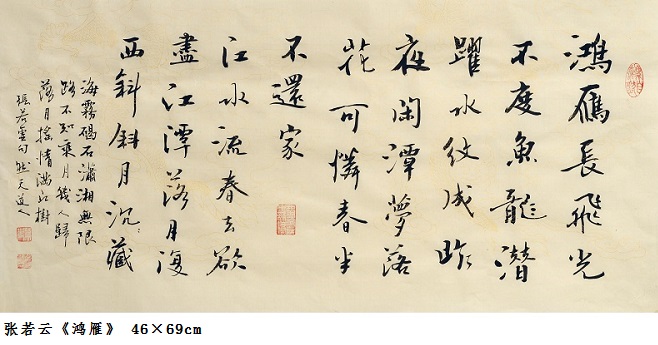 鴻雁長飛光
不度魚龍潛
躍水紋成昨
夜閑潭夢落
花可憐春半
不還家
江水流春去欲
盡江潭落月復
西斜斜月沉藏
海霧碣石瀟湘無限
路不知乘月幾人歸
落月搖情滿江樹
張若虛句 天道人
张若云《鸿雁》 46×69cm